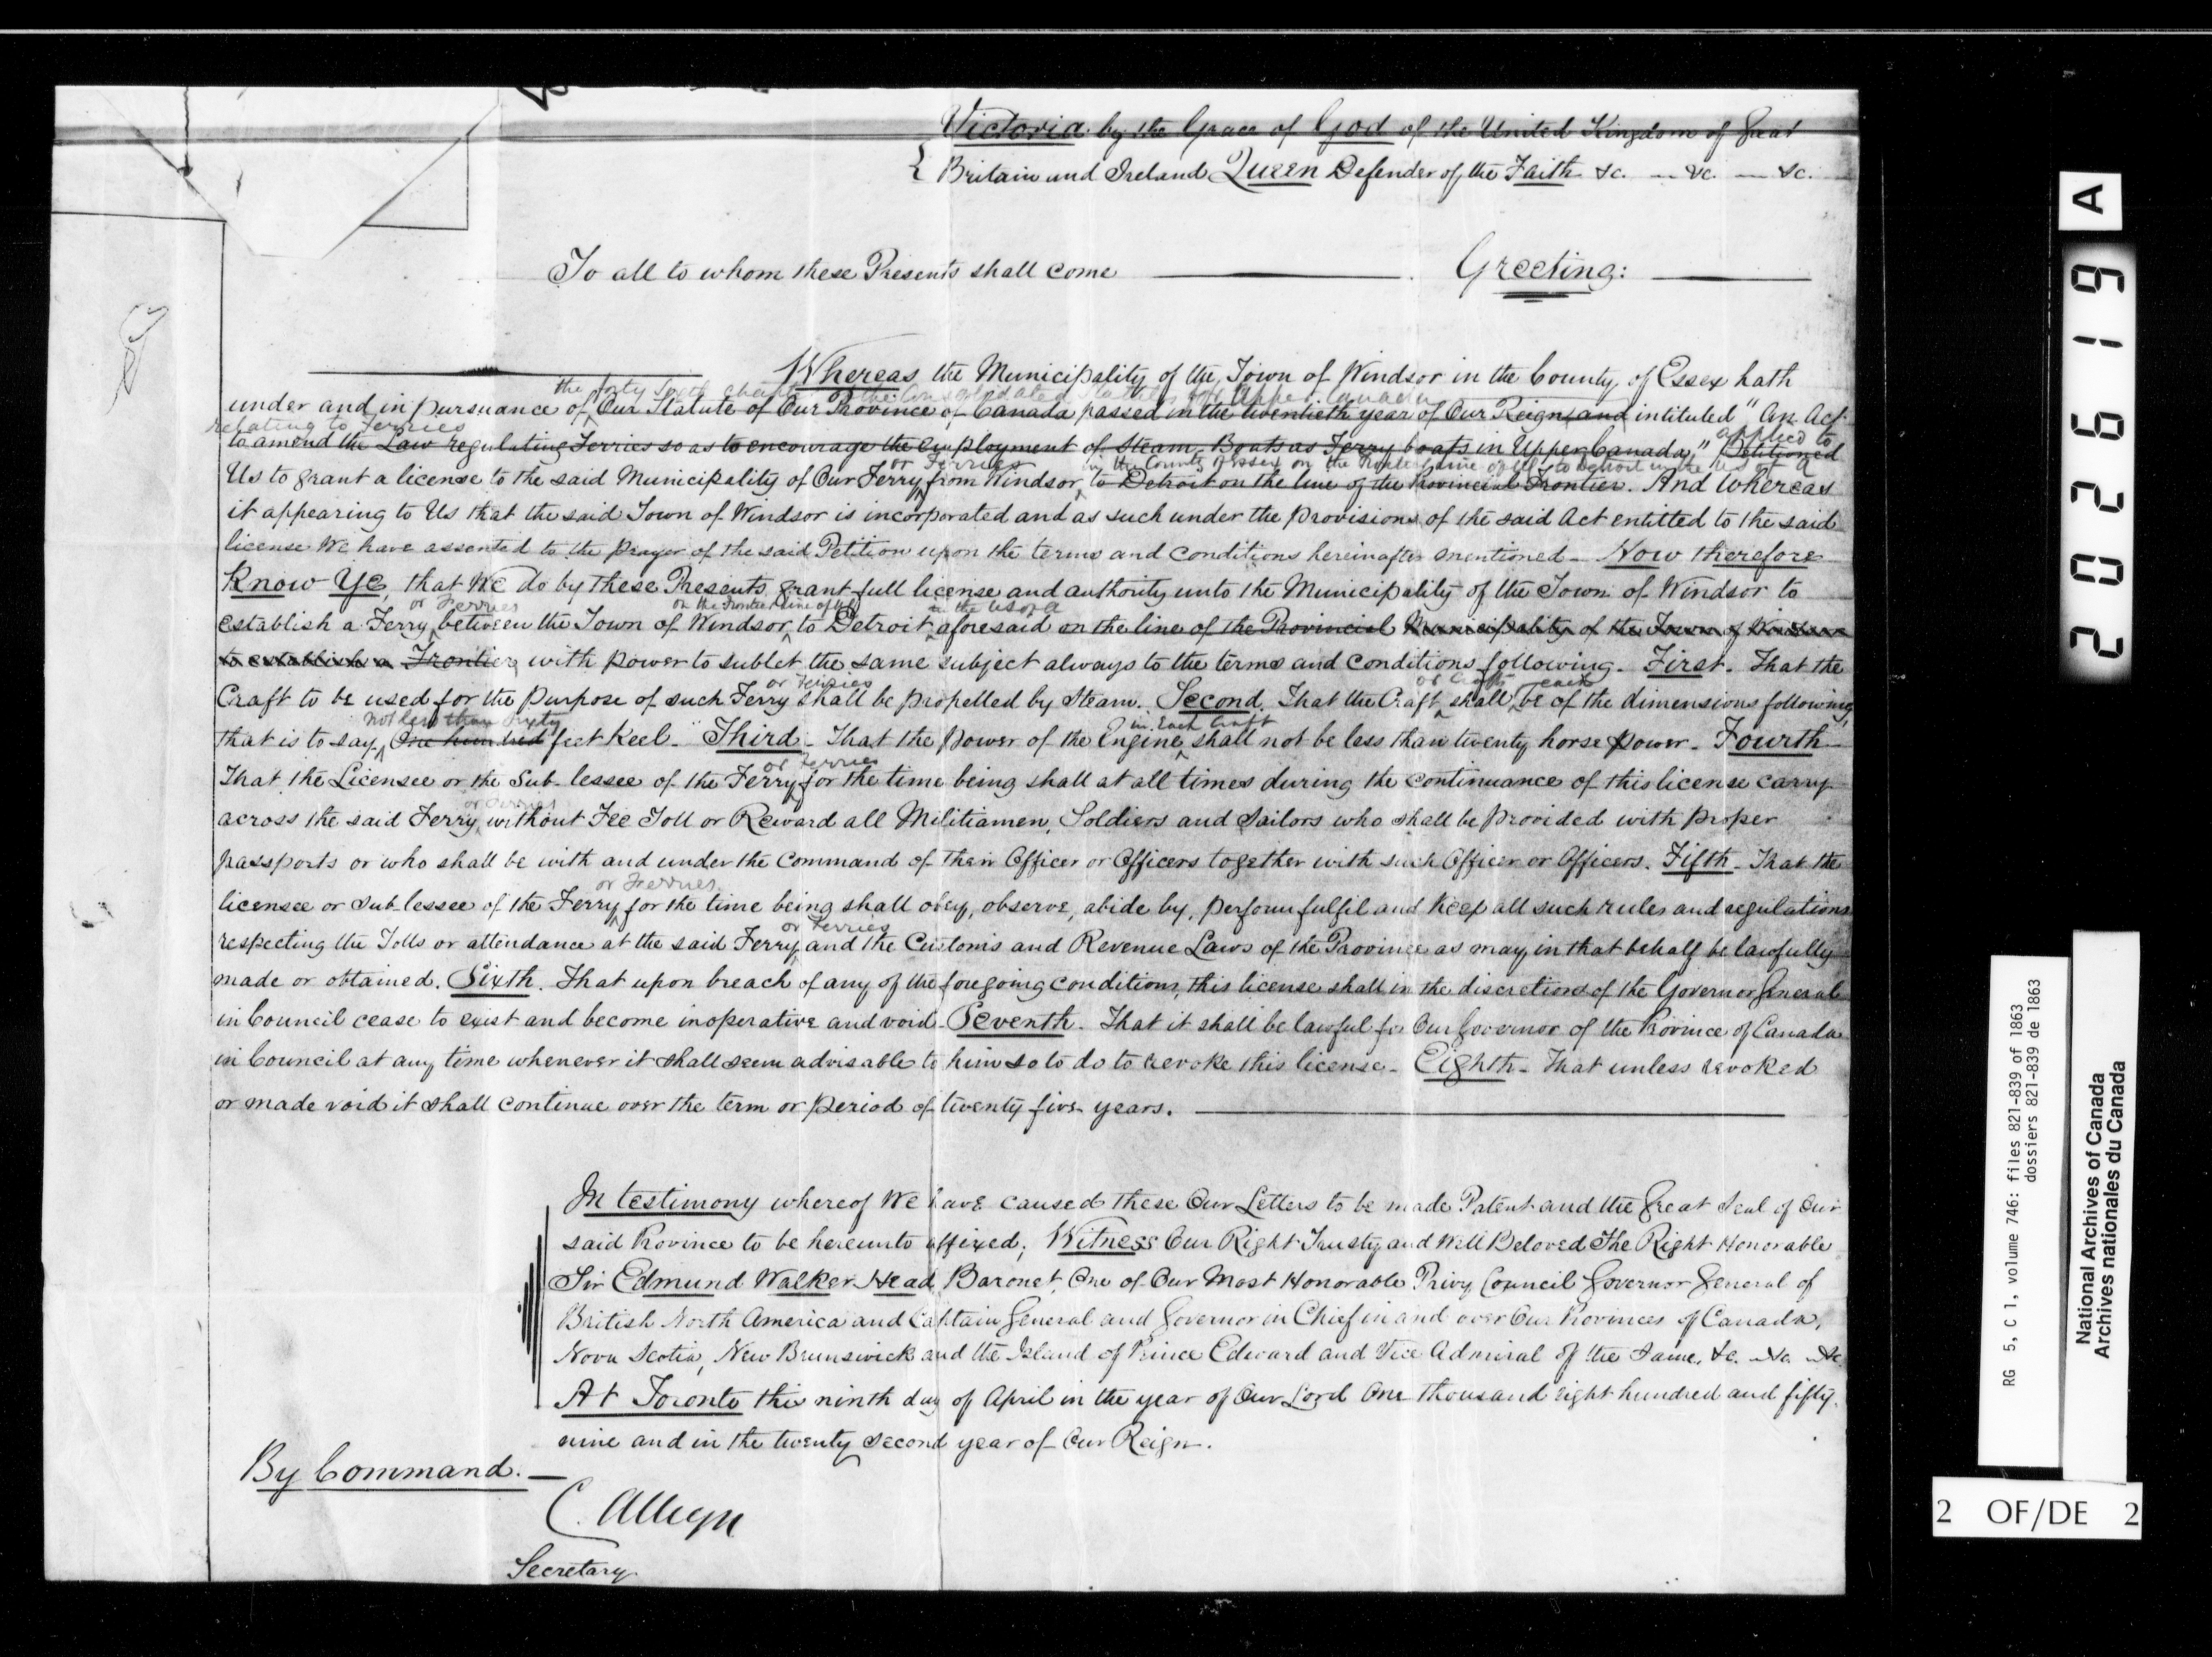 Victoria by the Grace of God of the United Kingdom of Great
Britain and Ireland Queen Defender of the Faith &c. — &c. — &c.
To all to whom these Presents shall come — Greeting: —
Whereas the Municipality of the Town of Windsor in the County of Essex hath
the forty sixth chapter of the Consolidated Statutes of Upper Canada
under and in pursuance of Our Statute of Our Province of Canada passed in the twentieth year of Our Reign and intituled "An Act
relating to Ferries
to amend the Law regulating Ferries so as to encourage the employment of Steam Boats as Ferry boats in Upper Canada," Petitioned
applied to
or Ferries in the County of Essex on the Frontier line of to Detroit in the US of A
Us to grant a license to the said Municipality of Our Ferry from Windsor to Detroit on the line of the Provincial Frontier. And Whereas
it appearing to Us that the said Town of Windsor is incorporated and as such under the provisions of the said Act entitled to the said
license We have assented to the prayer of the said Petition upon the terms and conditions hereinafter mentioned - Now therefore
Know Ye that We do by these Presents grant full license and authority unto the Municipality of the Town of Windsor to
or Ferries on the Frontier line of in the US of A
establish a Ferry between the Town of Windsor to Detroit aforesaid on the line of the Provincial Municipality of the Town of Windsor
to establish a Frontier, with power to sublet the same subject always to the terms and conditions following. First. That the
or Ferries or Crafts each
Craft to be used for the purpose of such Ferry shall be propelled by Steam. Second. That the Craft shall be of the dimensions following,
not less than in Each Craft
that is to say, One hundred feet Keel. Third - That the power of the Engine shall not be less than twenty horse power - Fourth -
or Ferries
That the Licensee or the Sub-lessee of the Ferry for the time being shall at all times during the continuance of this license carry
or Ferries
across the said Ferry without Fee Toll or Reward all Militiamen, Soldiers and Sailors who shall be provided with proper
passports or who shall be with and under the command of their Officer or Officers together with such Officer or Officers. Fifth - That the
or Ferries
licensee or sub-lessee of the Ferry for the time being shall obey, observe, abide by, perform fulfil and keep all such rules and regulations
or Ferries
respecting the Tolls or attendance at the said Ferry and the Customs and Revenue Laws of the Province as may in that behalf be lawfully
made or obtained. Sixth. That upon breach of any of the foregoing conditions, this license shall in the discretion of the Governor General
in Council cease to exist and become inoperative and void - Seventh. That it shall be lawful for Our Governor of the Province of Canada
in Council at any time whenever it shall seem advisable to him so to do to revoke this license - Eighth - That unless revoked
or made void it shall continue over the term or period of twenty five years.
In testimony whereof We have caused these Our Letters to be made Patent and the Great Seal of Our
said Province to be hereunto affixed; Witness Our Right Trusty and Well Beloved The Right Honorable
Sir Edmund Walker Head, Baronet, One of Our Most Honorable Privy Council Governor General of
British North America and Captain General and Governor in Chief in and over Our Provinces of Canada,
Nova Scotia, New Brunswick and the Island of Prince Edward and Vice Admiral of the Same, &c. &c. &c.
At Toronto this ninth day of April in the year of Our Lord One thousand eight hundred and fifty
nine and in the twenty second year of Our Reign.
By Command. —
C. Alleyn
Secretary
202619 A
RG 5, C 1, volume 746: files 821-839 of 1863
dossiers 821-839 de 1863
National Archives of Canada
Archives nationales du Canada
2 OF/DE 2